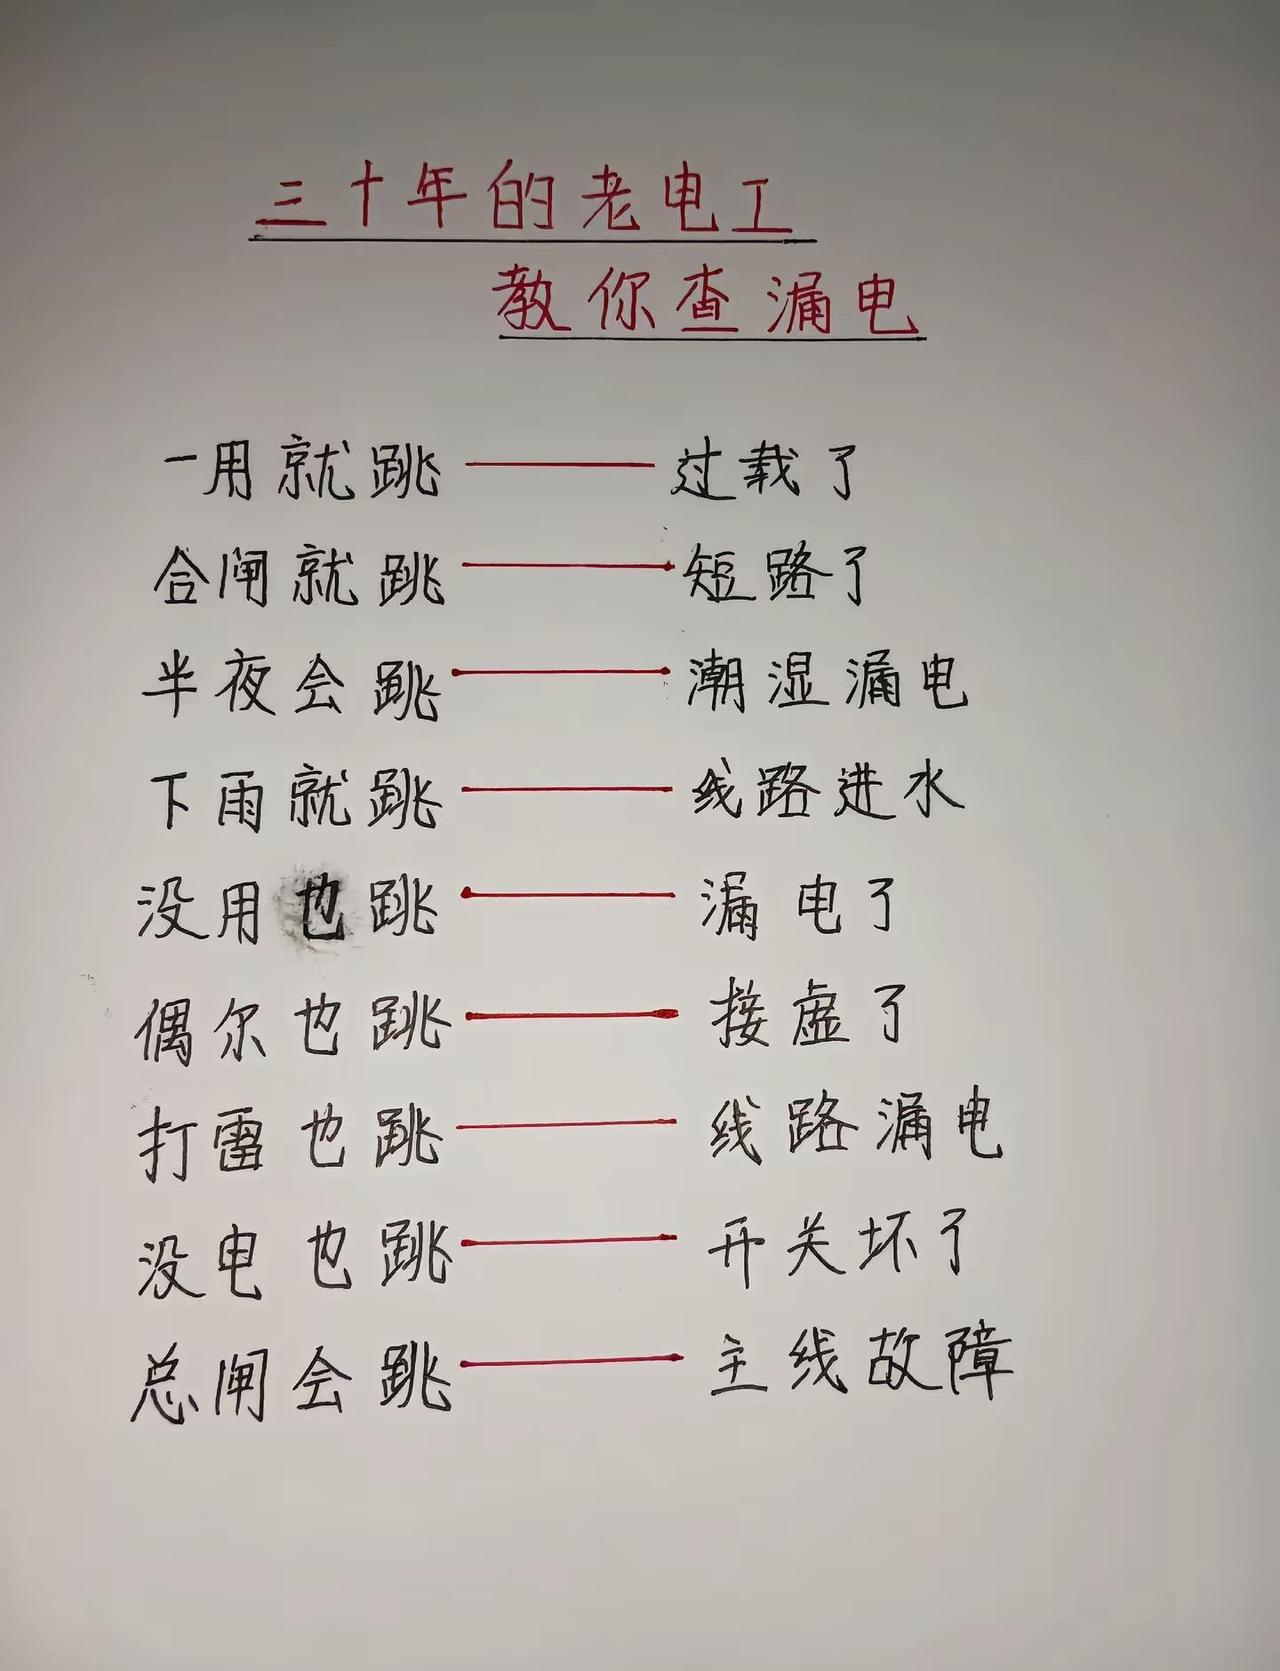 三十年的老电工
教你查漏电
一用就跳——过载了
合闸就跳——短路了
半夜会跳——潮湿漏电
下雨就跳——线路进水
没用也跳——漏电了
偶尔也跳——接虚了
打雷也跳——线路漏电
没电也跳——开关坏了
总闸会跳——主线故障